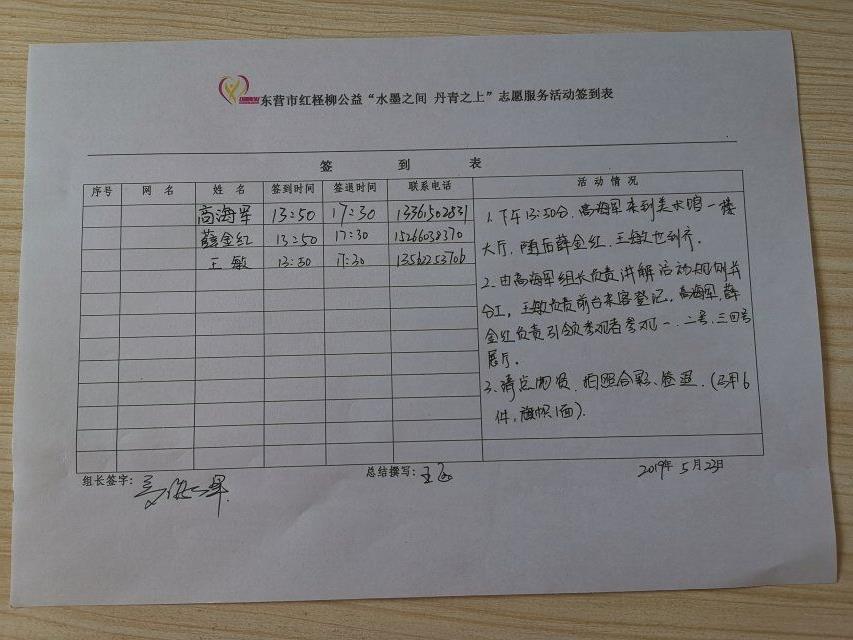 东营市红柽柳公益“水墨之间 丹青之上”志愿服务活动签到表
签 到 表
序号 网 名 姓 名 签到时间 签退时间 联系电话 活 动 情 况
高海军 13:50 17:30 13361502831
薛金红 13:50 17:30 15266038370
王敏 13:50 17:30 13562253706
1、下午13:50分,高海军来到美术馆一楼
大厅,随后薛金红、王敏也到齐.
2、由高海军组长负责讲解活动规则并
分工,王敏负责前台来客登记,高海军,薛
金红负责引领参观者参观一、二号、三四号
展厅.
3、清点物资、拍照合影、签退.(马甲6
件,旗帜1面).
组长签字:高海军
总结撰写:王敏
2019年5月23日